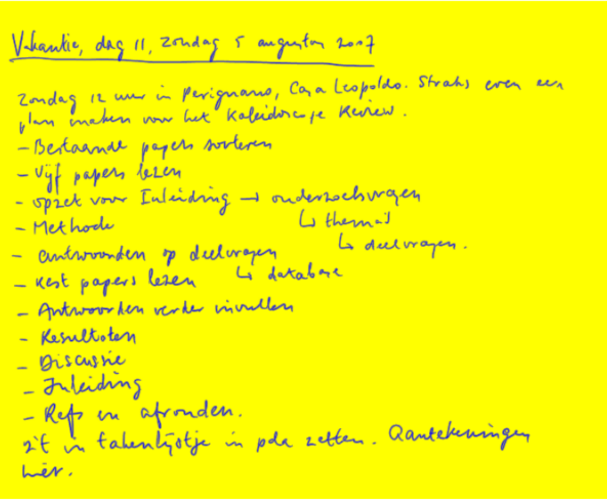 Vakantie, dag 11, zondag 5 augustus 2007
Zondag 12 uur in Perignano, Casa Leopoldo. Straks even een
plan maken voor het Kaleidoscope Review.
- Bestaande papers sorteren
- Vijf papers lezen
- opzet voor Inleiding → onderzoeksvragen
- Methode ↳ thema's
- antwoorden op deelvragen ↳ deelvragen.
- Rest papers lezen ↳ database
- Antwoorden verder invullen
- Resultaten
- Discussie
- Inleiding
- Refs en afronden.
Zit in takenlijstje in pda zetten. Aantekeningen
hier.